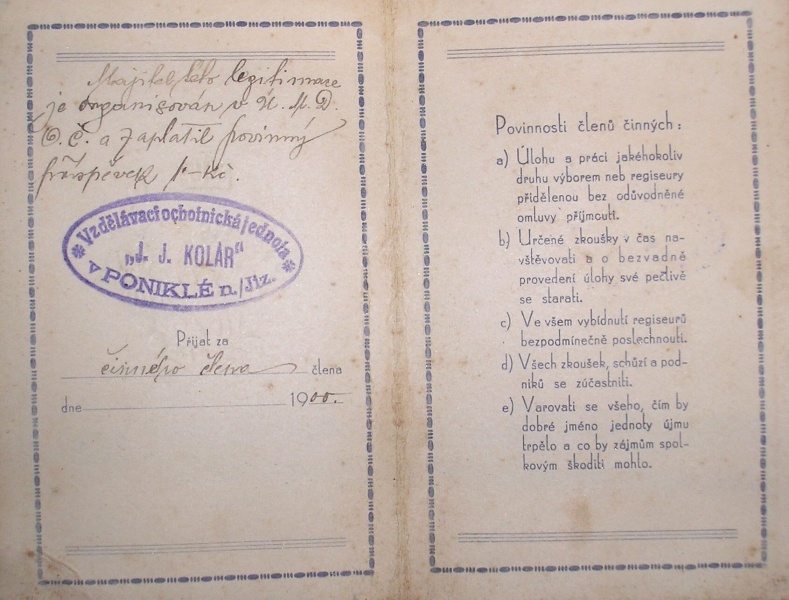 Majitel této legitimace
je organisován v Ú. M. D.
O. Č. a zaplatil povinný
příspěvek 1·-Kč.
Vzdělávací ochotnická jednota
„J. J. KOLÁR"
v PONIKLÉ n./Jiz.
Přijat za
činného člena člena
dne 1900.
Povinnosti členů činných:
a) Úlohu a práci jakéhokoliv
druhu výborem neb regiseury
přidělenou bez odůvodněné
omluvy přijmouti.
b) Určené zkoušky v čas na-
vštěvovati a o bezvadné
provedení úlohy své pečlivě
se starati.
c) Ve všem vybídnutí regiseurů
bezpodmínečně poslechnouti.
d) Všech zkoušek, schůzí a pod-
niků se zúčastniti.
e) Varovati se všeho, čím by
dobré jméno jednoty újmu
trpělo a co by zájmům spol-
kovým škoditi mohlo.